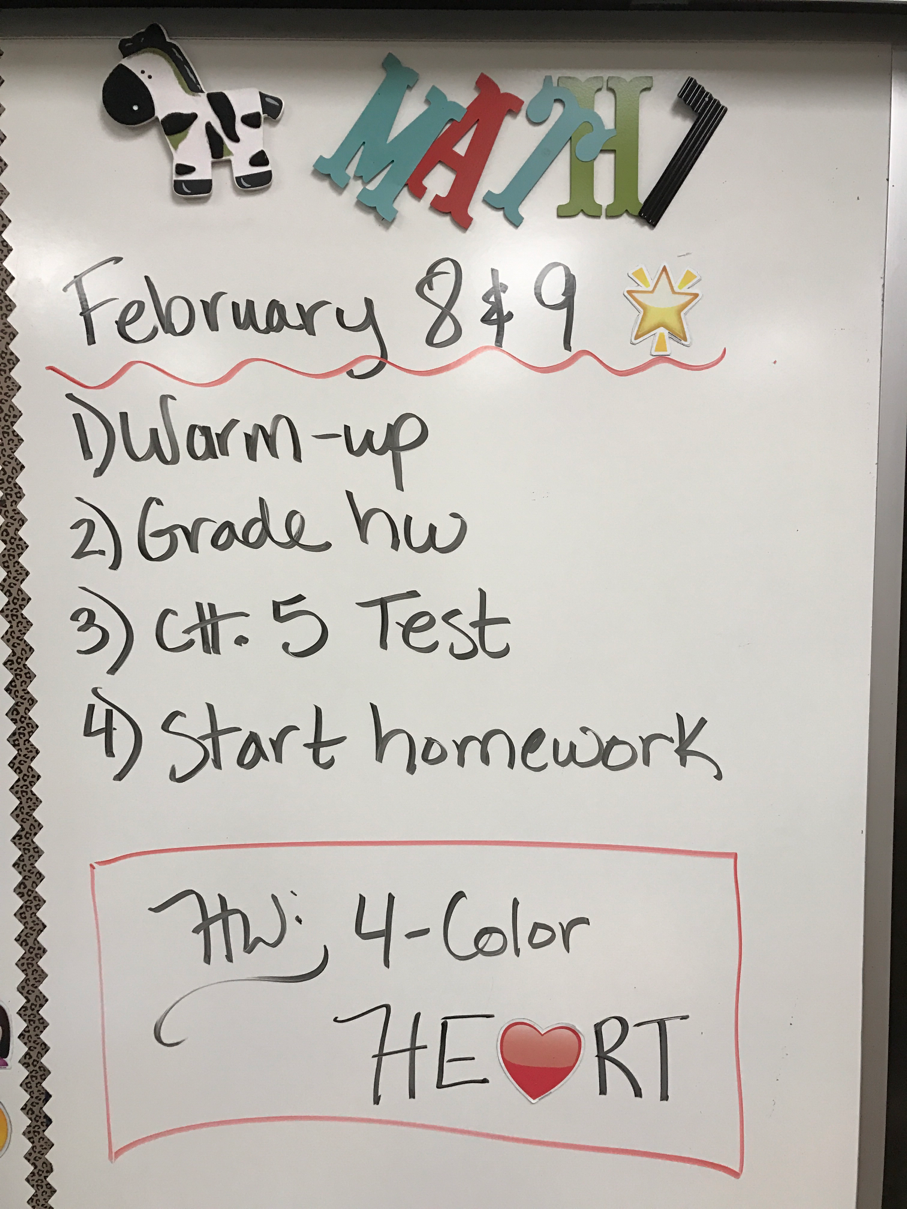 MATH 7
February 8 & 9
1) Warm-up
2) Grade hw
3) CH. 5 Test
4) Start homework
HW: 4-Color
HE❤RT